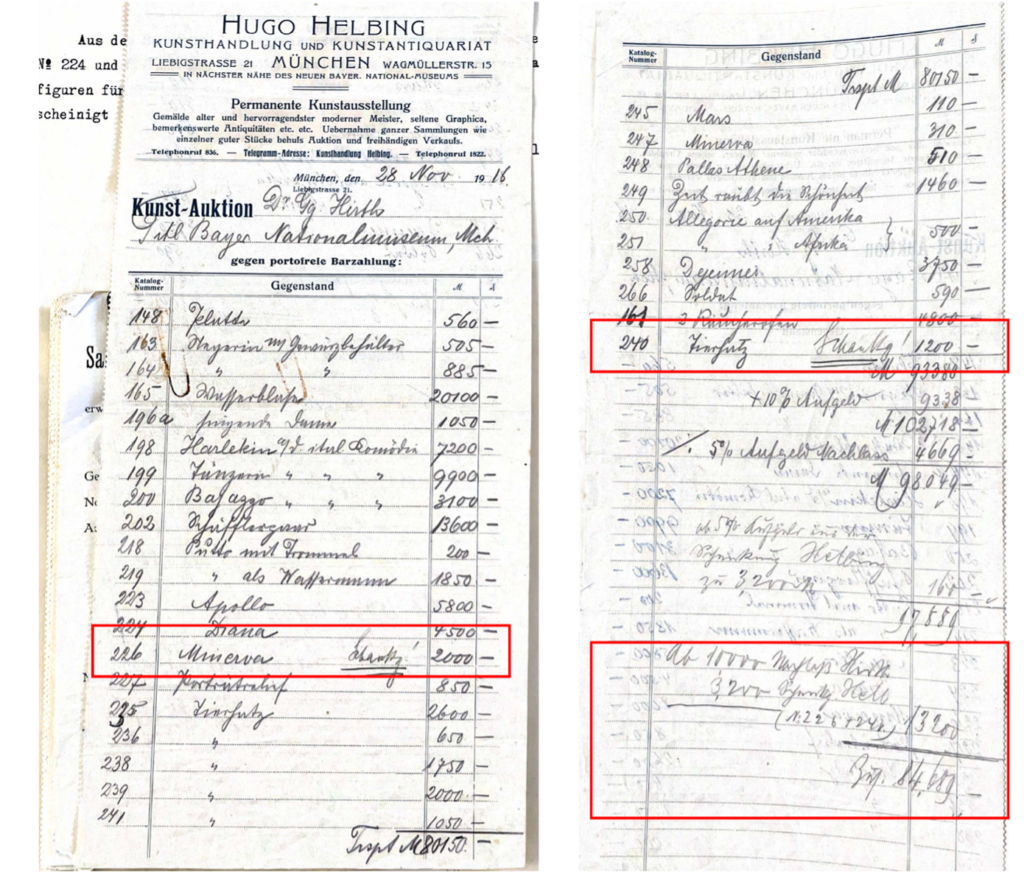 Aus de
№ 224 und
figuren für
scheinigt
HUGO HELBING
KUNSTHANDLUNG UND KUNSTANTIQUARIAT
LIEBIGSTRASSE 21 MÜNCHEN WAGMÜLLERSTR. 15
IN NÄCHSTER NÄHE DES NEUEN BAYER. NATIONAL-MUSEUMS
Permanente Kunstausstellung
Gemälde alter und hervorragendster moderner Meister, seltene Graphica,
bemerkenswerte Antiquitäten etc. etc. Uebernahme ganzer Sammlungen wie
einzelner guter Stücke behufs Auktion und freihändigen Verkaufs.
Telephonruf 836. — Telegramm-Adresse: Kunsthandlung Helbing. — Telephonruf 1822.
München, den 28 Nov. 1916
Liebigstrasse 21.
Kunst-Auktion Dr. Gg. Hirth
Titl. Bayer Nationalmuseum, Mch.
gegen portofreie Barzahlung:
Katalog-Nummer Gegenstand M ₰
148 Plutto 560 —
163 Negerin m/ Gewürzbehälter 505 —
164 " " 885 —
165 Wasserbläser 20100 —
196a singende Dame 1050 —
198 Harlekin a/d. ital Komödie 7200 —
199 Tänzerin " " " 9900 —
200 Bajazzo " " " 3100 —
203 Schäfflerpaar 13600 —
218 Putto mit Trommel 200 —
219 " als Wassermann 1850 —
223 Apollo 5800 —
224 Diana 4500 —
226 Minerva 2000 —
227 Porträtrelief 850 —
235 Tierhatz 2600 —
236 " 650 —
238 " 1750 —
239 " 2000 —
241 " 1050 —
Trspt M 80150.—
Katalog-Nummer Gegenstand M ₰
Trspt M 80150 —
245 Mars 110 —
247 Minerva 310 —
248 Pallas Athene 510 —
249 Zeit raubt die Schönheit 1460 —
250 Allegorie auf Amerika
251 " " Afrika } 500 —
258 Dejeuner 3750 —
266 Soldat 590 —
161 2 Räucheröfen 4800 —
240 Tierhatz 1200 —
M 93380 —
+ 10% Aufgeld 9338
M 102718 —
./. 5% Aufgeld Nachlass 4669 —
M 98049 —
ab 5% Aufgeld aus der
Schenkung Helbing
zu 3,200 M
Ab 10,000 Nachlaß Hirth
3,200 Schenkg Helb
13200
84,689 —